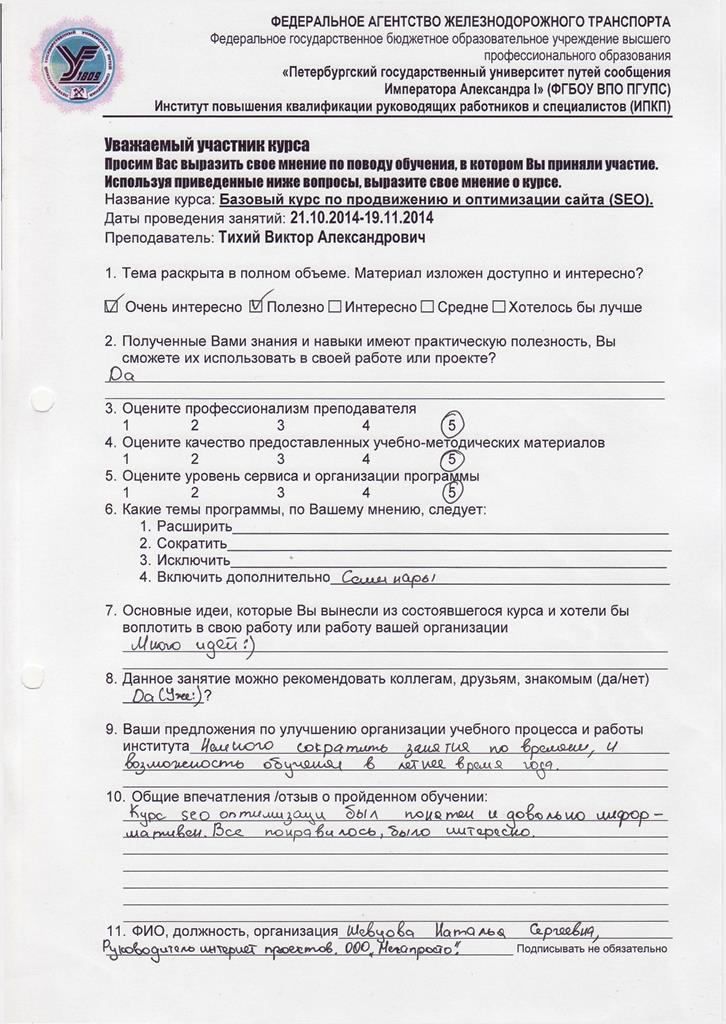 ФЕДЕРАЛЬНОЕ АГЕНТСТВО ЖЕЛЕЗНОДОРОЖНОГО ТРАНСПОРТА
Федеральное государственное бюджетное образовательное учреждение высшего
профессионального образования
«Петербургский государственный университет путей сообщения
Императора Александра I» (ФГБОУ ВПО ПГУПС)
Институт повышения квалификации руководящих работников и специалистов (ИПКП)
1809
Уважаемый участник курса
Просим Вас выразить свое мнение по поводу обучения, в котором Вы приняли участие.
Используя приведенные ниже вопросы, выразите свое мнение о курсе.
Название курса: Базовый курс по продвижению и оптимизации сайта (SEO).
Даты проведения занятий: 21.10.2014-19.11.2014
Преподаватель: Тихий Виктор Александрович
1. Тема раскрыта в полном объеме. Материал изложен доступно и интересно?
☑ Очень интересно ☑ Полезно ☐ Интересно ☐ Средне ☐ Хотелось бы лучше
2. Полученные Вами знания и навыки имеют практическую полезность, Вы
сможете их использовать в своей работе или проекте?
Да
3. Оцените профессионализм преподавателя
1 2 3 4 5
4. Оцените качество предоставленных учебно-методических материалов
1 2 3 4 5
5. Оцените уровень сервиса и организации программы
1 2 3 4 5
6. Какие темы программы, по Вашему мнению, следует:
1. Расширить
2. Сократить
3. Исключить
4. Включить дополнительно Семинары
7. Основные идеи, которые Вы вынесли из состоявшегося курса и хотели бы
воплотить в свою работу или работу вашей организации
Много идей :)
8. Данное занятие можно рекомендовать коллегам, друзьям, знакомым (да/нет)
Да (Уже :) ?
9. Ваши предложения по улучшению организации учебного процесса и работы
института Немного сократить занятия по времени, и
возможность обучения в летнее время года.
10. Общие впечатления /отзыв о пройденном обучении:
Курс seo оптимизаци был понятен и довольно инфор-
мативен. Все понравилось, было интересно.
11. ФИО, должность, организация Шевцова Наталья Сергеевна,
Руководитель интернет проектов. ООО „Мегапросто".
Подписывать не обязательно